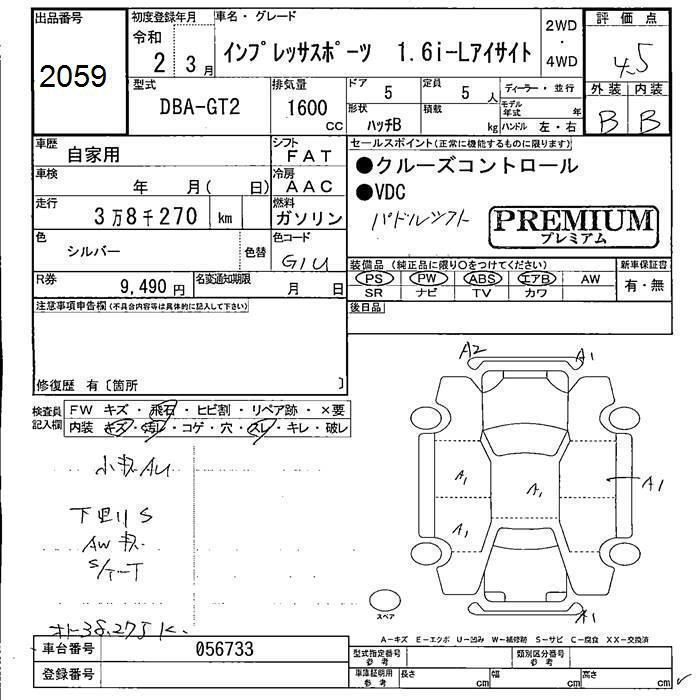 出品番号
2059
初度登録年月
令和
2 3月
車名・グレード
インプレッサスポーツ 1.6i-Lアイサイト
2WD
・
4WD
評価点
4.5
外装 内装
B B
型式
DBA-GT2
排気量
1600
CC
ドア
5
定員
5 人
形状
ハッチB
積載
kg
ディーラー・並行
モデル年式 年
ハンドル 左・右
車歴
自家用
シフト
FAT
車検
年 月( 日)
冷房
AAC
走行
3万8千270 km
燃料
ガソリン
色
シルバー
色替
色コード
G1U
R券
9,490円
名変通知期限
月 日
セールスポイント(正常に機能するものに限ります)
●クルーズコントロール
●VDC
パドルシフト
PREMIUM
プレミアム
装備品(純正品に限り○をつけてください)
PS PW ABS エアB AW
SR ナビ TV カワ
新車保証書
有・無
後日品
注意事項申告欄(不具合内容等は具体的に記入して下さい)
修復歴 有〔箇所 〕
検査員記入欄
FW キズ・飛石・ヒビ割・リペア跡・×要
内装 キズ・汚レ・コゲ・穴・スレ・キレ・破レ
小キズAU
下廻りS
AWキズ
S/T-T
オド38,275K
A2 A1
A1 A1 A1
A1
A1
スペア
A-キズ E-エクボ U-凹み W-補修跡 S-サビ C-腐食 XX-交換済
車台番号 056733
登録番号
型式指定番号 参考
類別区分番号 参考
車庫証明用 参考
長さ cm 幅 cm 高さ cm